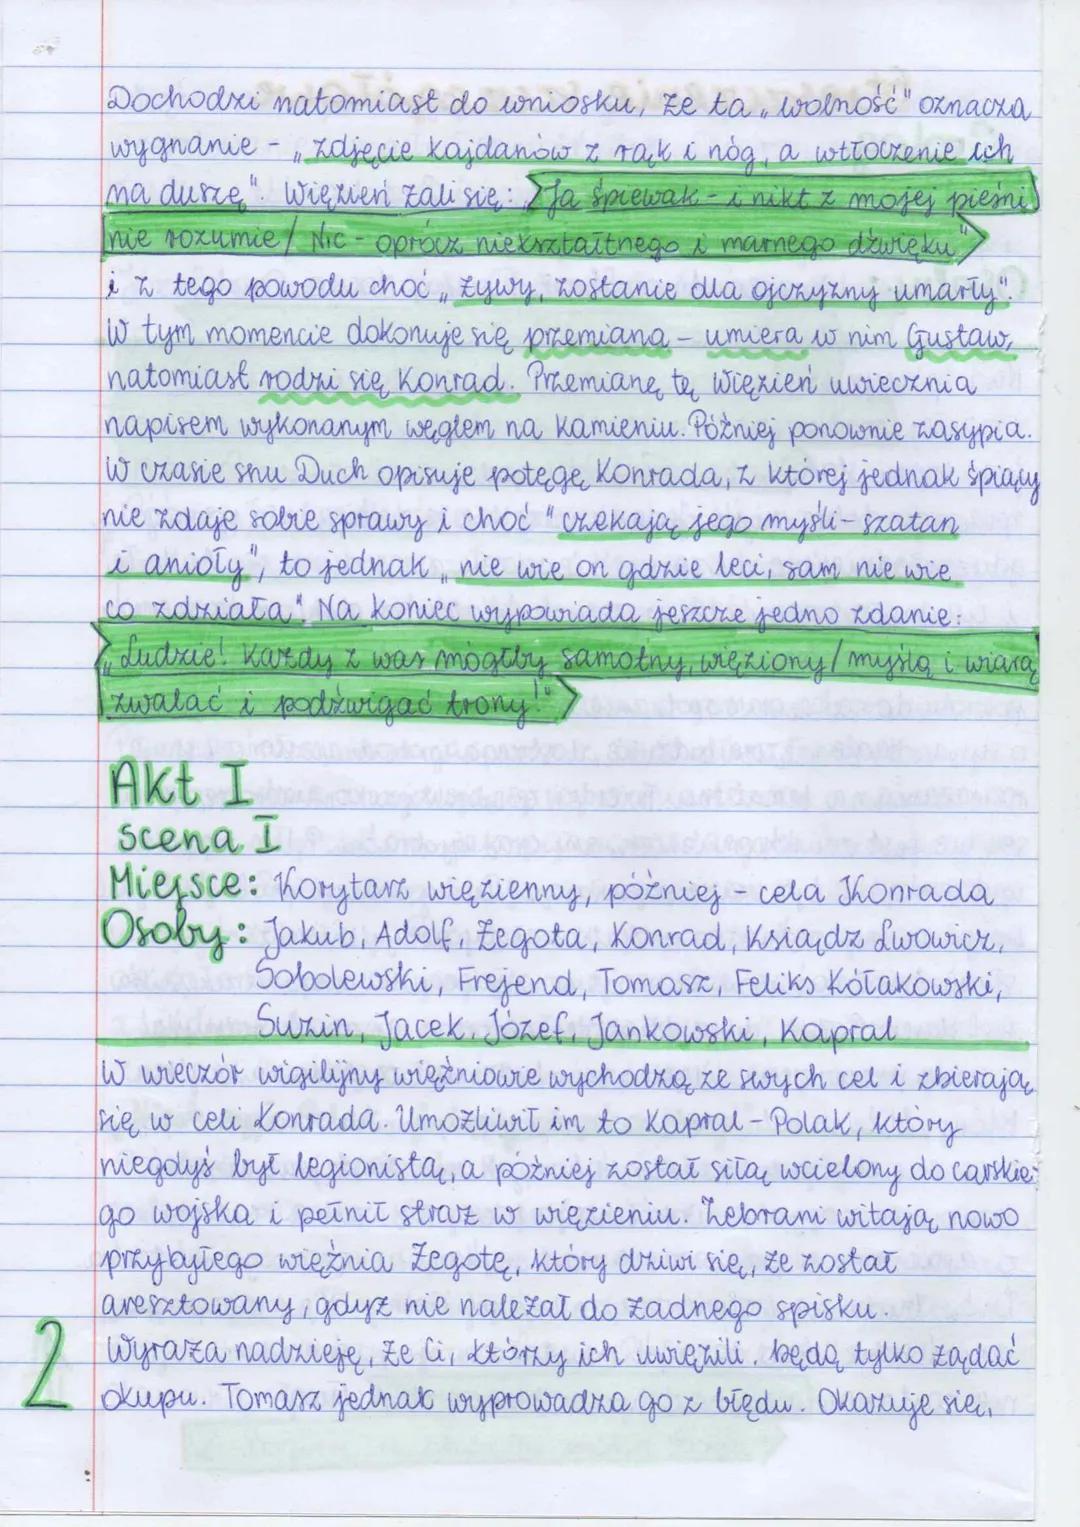 Dochodzi natomiast do wniosku, że ta „wolność" oznacza
wygnanie - „zdjęcie kajdanów z rąk i nóg, a wtłoczenie ich
na duszę". Więzień żali się: „Ja śpiewak - i nikt z mojej pieśni
nie rozumie / Nic - oprócz niekształtnego i marnego dźwięku"
i z tego powodu choć „żywy, zostanie dla ojczyzny umarły".
W tym momencie dokonuje się przemiana - umiera w nim Gustaw,
natomiast rodzi się Konrad. Przemianę tę więzień uwiecznia
napisem wykonanym węglem na kamieniu. Później ponownie zasypia.
W czasie snu Duch opisuje potęgę Konrada, z której jednak śpiący
nie zdaje sobie sprawy i choć "czekają jego myśli - szatan
i anioły", to jednak „nie wie on gdzie leci, sam nie wie
co zdziała". Na koniec wypowiada jeszcze jedno zdanie:
„Ludzie! Każdy z was mógłby samotny, więziony / myślą i wiarą
zwalać i podźwigać trony!"
Akt I
scena I
Miejsce: Korytarz więzienny, później - cela Konrada
Osoby: Jakub, Adolf, Żegota, Konrad, Ksiądz Lwowicz,
Sobolewski, Frejend, Tomasz, Feliks Kółakowski,
Suzin, Jacek, Józef, Jankowski, Kapral
W wieczór wigilijny więźniowie wychodzą ze swych cel i zbierają
się w celi Konrada. Umożliwił im to Kapral - Polak, który
niegdyś był legionistą, a później został siłą wcielony do carskie-
go wojska i pełnił straż w więzieniu. Zebrani witają nowo
przybyłego więźnia Żegotę, który dziwi się, że został
aresztowany, gdyż nie należał do żadnego spisku.
Wyraża nadzieję, że Ci, którzy ich uwięzili, będą tylko żądać
okupu. Tomasz jednak wyprowadza go z błędu. Okazuje się,
2